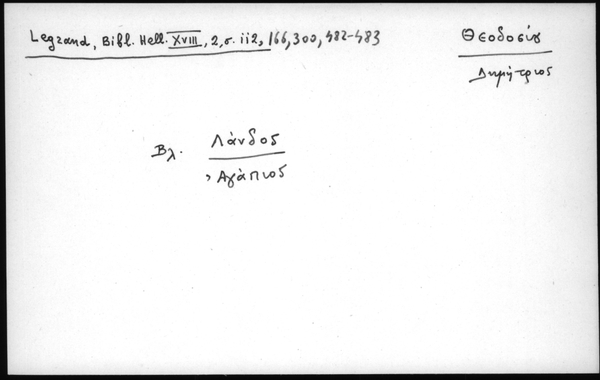 Legrand, Bibl. Hell. XVIII, 2, σ. 112, 166, 300, 482-483
Θεοδοσίου
Δημήτριος
Βλ. Λάνδος
Ἀγάπιος